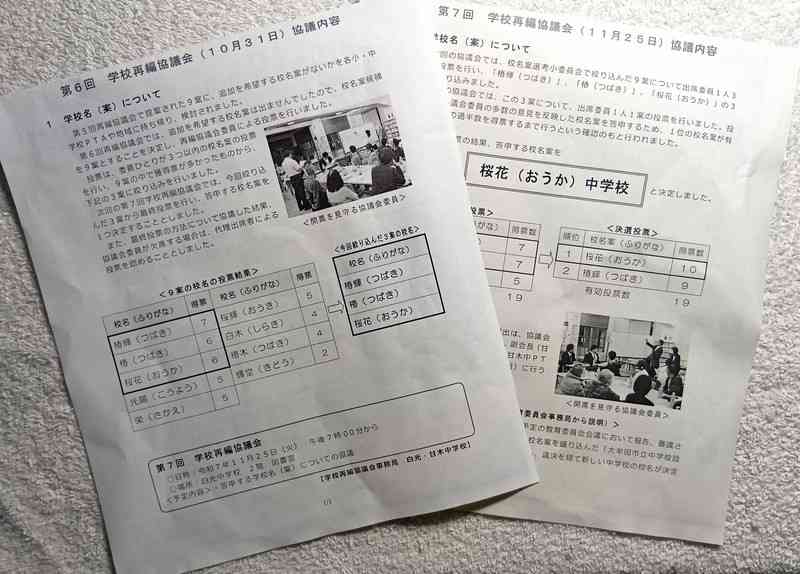 第6回　学校再編協議会（10月31日）協議内容
1　学校名（案）について
第5回再編協議会で提案された9案に、追加を希望する校名案がないかを各小・中
学校PTAや地域に持ち帰り、検討されました。
第6回再編協議会では、追加を希望する校名案は出ませんでしたので、校名案候補
を9案とすることを決定し、再編協議会委員による投票を行いました。
投票は、委員ひとりが3つ以内の校名案の投票
を行い、9案の中で獲得票が多かったものから、
下記の3案に絞り込みを行いました。
次回の第7回学校再編協議会では、今回絞り込
んだ3案から最終投票を行い、答申する校名案を
1つ決定することとしました。
また、最終投票の方法について協議した結果、
協議会委員が欠席する場合は、代理出席者による
投票を認めることとしました。
＜開票を見守る協議会委員＞
＜9案の校名の投票結果＞
校名（ふりがな）　得票　校名（ふりがな）　得票
椿輝（つばき）　7　桜輝（おうき）　5
椿（つばき）　6　白木（しらき）　4
桜花（おうか）　6　椿木（つばき）　4
光陽（こうよう）　5　　（きどう）　2
栄（さかえ）　5
＜今回絞り込んだ3案の校名＞
校名（ふりがな）
椿輝（つばき）
椿（つばき）
桜花（おうか）
第7回　学校再編協議会
□日時：令和7年11月25日（火）　午後7時00分から
□場所：白光中学校　2階　図書室
＜予定内容＞・答申する学校名（案）についての協議
【学校再編協議会事務局　白光・甘木中学校】
第7回　学校再編協議会（11月25日）協議内容
校名（案）について
回の協議会では、校名案選考小委員会で絞り込んだ9案について出席委員1人3
投票を行い、「椿輝（つばき）」、「椿（つばき）」、「桜花（おうか）」の3
り込みました。
の協議会では、この3案について、出席委員1人1案の投票を行いました。投
議会委員の多数の意見を反映した校名案を答申するため、1位の校名案が有
の過半数を得票するまで行うという確認のもと行われました。
票の結果、答申する校名案を
桜花（おうか）中学校
と決定しました。
投票＞
りがな）　得票数
7
7
5
19
＜決選投票＞
順位　校名案（ふりがな）　得票数
1　桜花（おうか）　10
2　椿輝（つばき）　9
有効投票数　19
出は、協議会
副会長（甘
甘木中PT
に行う
＜開票を見守る協議会委員＞
委員会事務局から説明）＞
予定の教育委員会会議において報告、審議さ
校名案を盛り込んだ「大牟田市立中学校設
、議決を経て新しい中学校の校名が決定